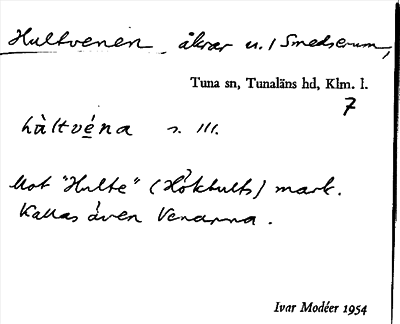 Hultvenen, åkrar u. / Smedserum,
Tuna sn, Tunaläns hd, Klm. l.
7
hùltvéna s. III.
Mot "Hulte" (Hökhults) mark.
Kallas även Venarna.
Ivar Modéer 1954